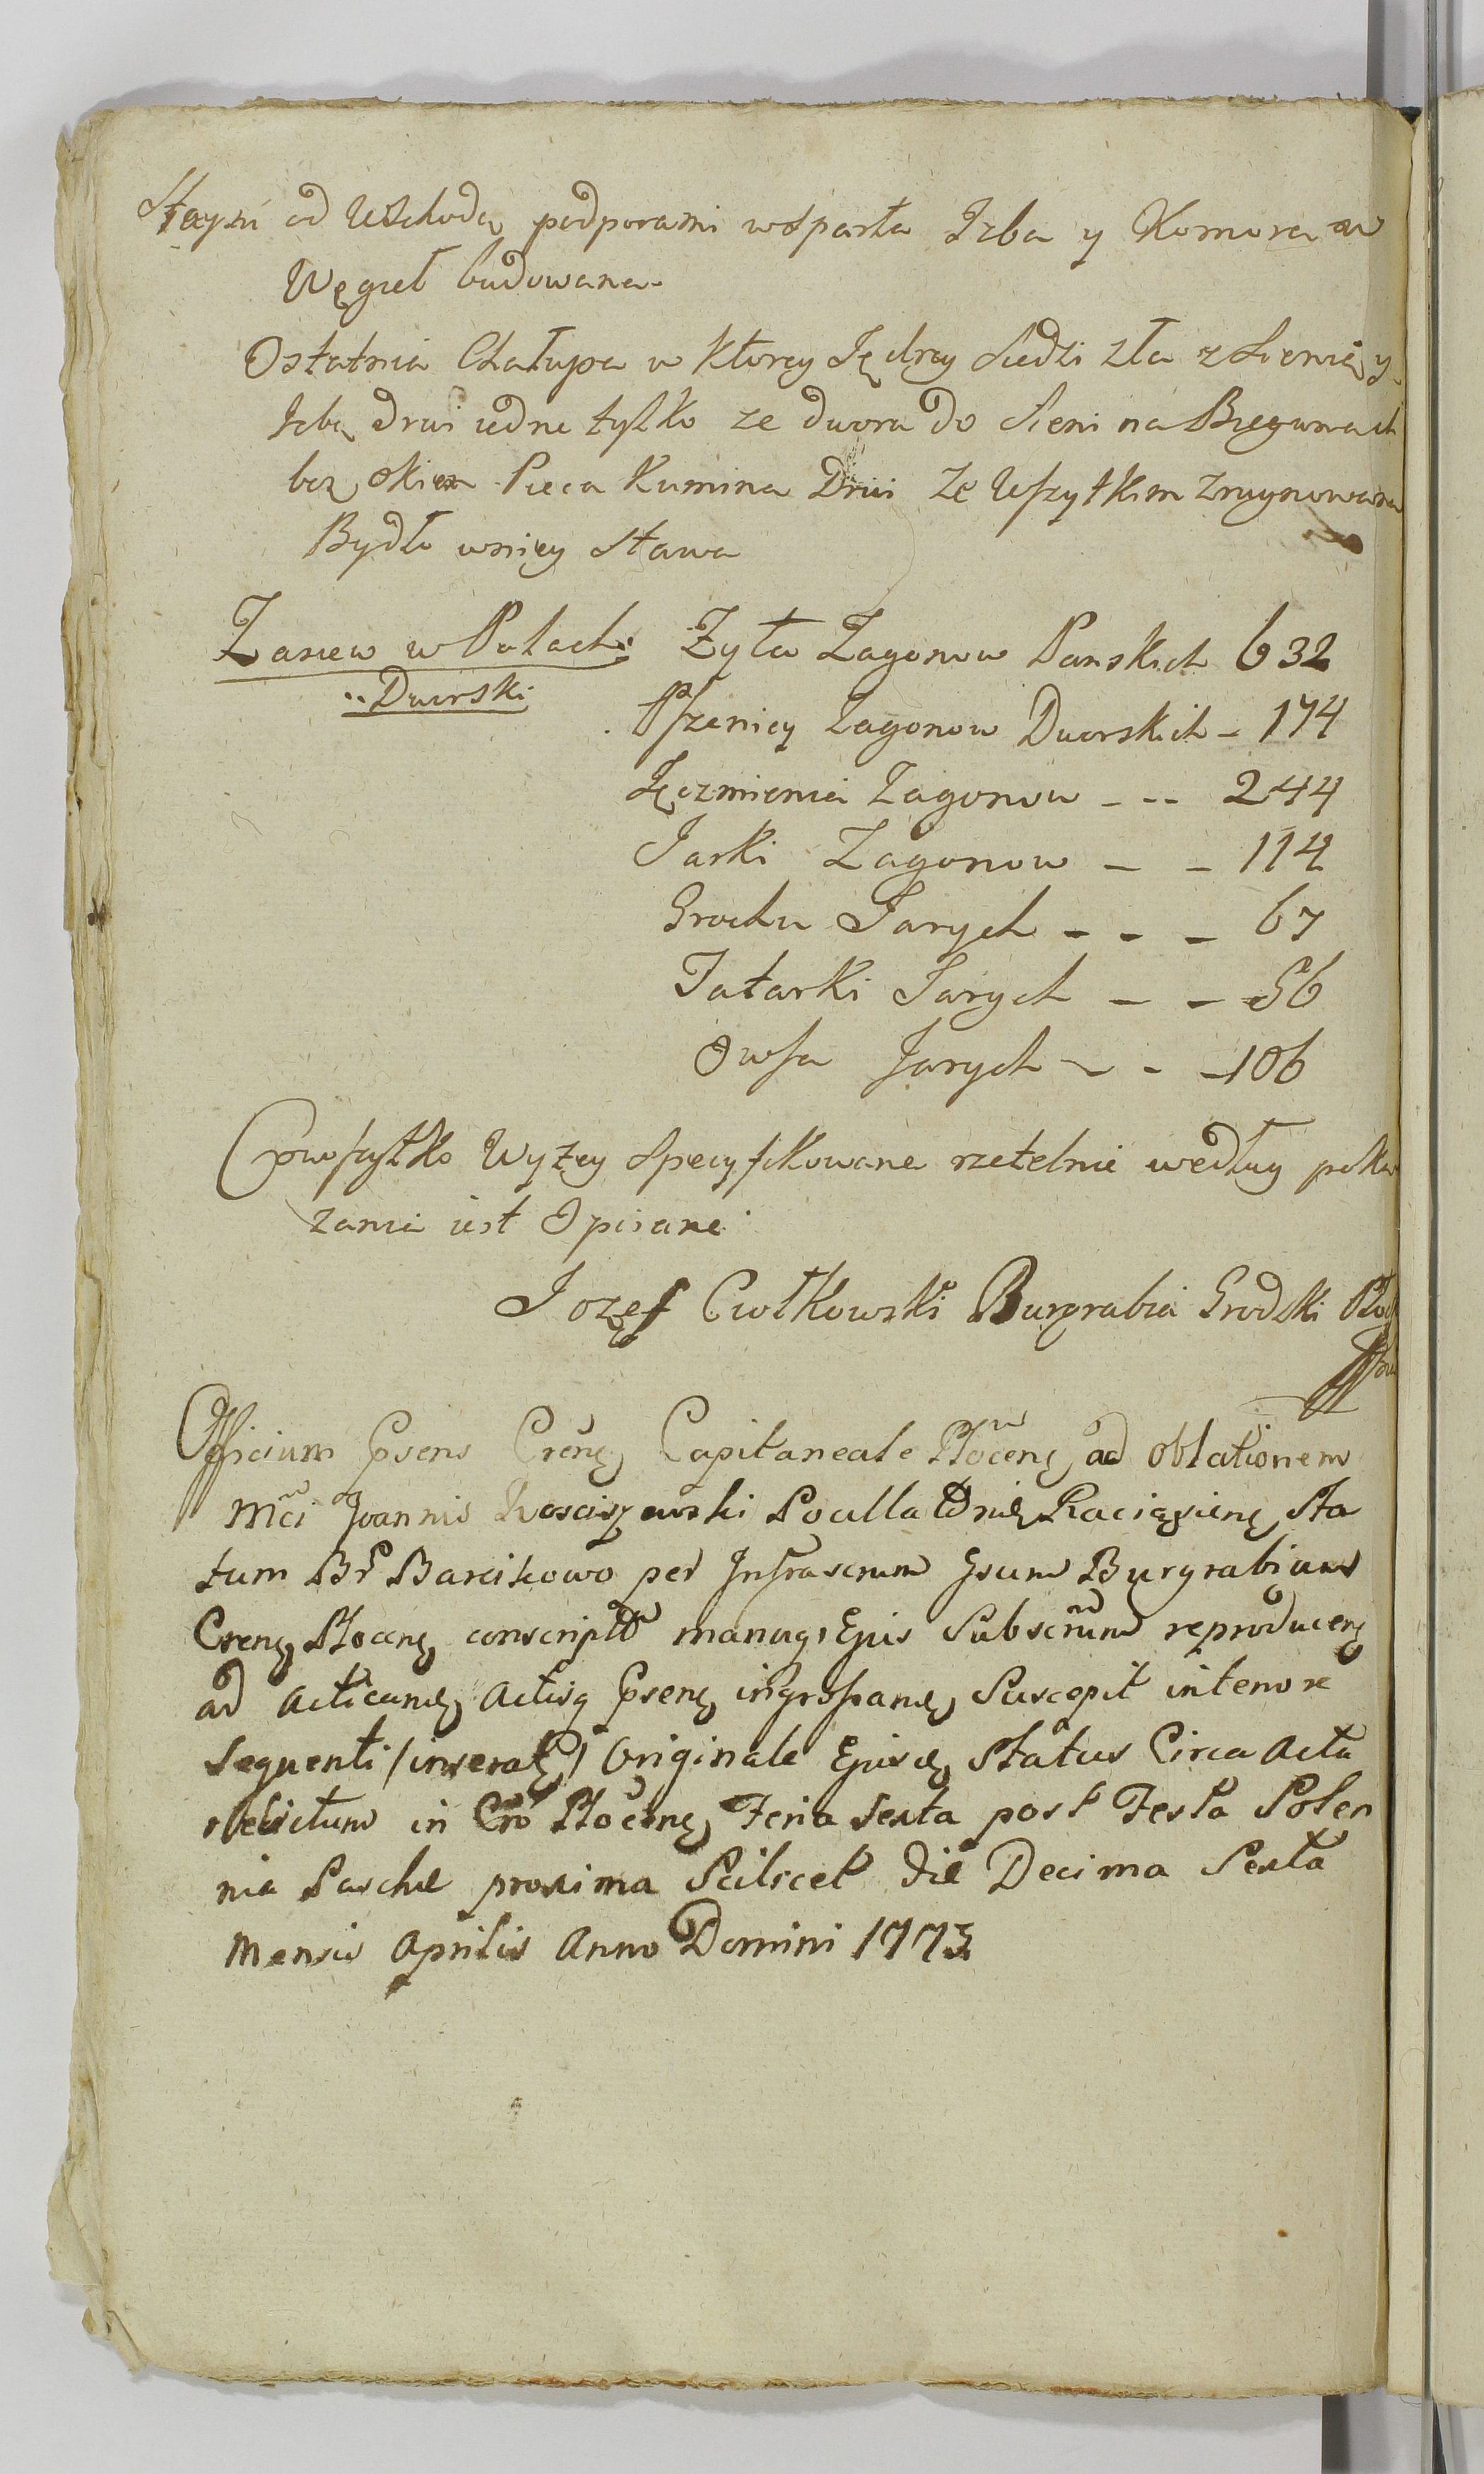 Stayni od Wschodu podporami wsparta Izba y Komora w
Węgieł budowana
Ostatnia Chałupa w ktorey Jędrzy Siedzi zła z Sienią y
Izbą drzwi iedne tylko ze dwora do Sieni na Biegunach
bez okien Pieca Kumina Drzwi ze Wszytkim zruynowana
Bydło wniey Stawa
Zasiew w Polach Zyta Zagonow Panskich 632
Dworski
Pszenicy Zagonow Dworskich - 174
Jęczmienia Zagonow - - - 244
Jarki Zagonow - - 114
Grochu Jarych - - - 67
Tatarki Jarych - - 56
Owsa Jarych - - - 106
Co wszytko Wyzey Specyfikowane rzetelnie według poka
zania iest Opisane
Jozef Ciołkowski Burgrabia Grodzki
Officium Psens Crene Capitaneale Płocene ad oblationem
Mci Joannis Kosciszewski Raciąziene Sta
tum Br Barcikowo per Infrascrum Jsum Burgrabium
Crene Płocene conscriptum manuq Ejus Subscrum reproducene
ad acticanue actisq Psene ingrossanue Suscepit intenore
Sequenti / inserate / Originale Ejusde Status Circa acta
relictum in Cro Płocene Feria Sexta post Festa Solen
nia Pasche proxima Scilicet die Decima Sexta
Mensis Aprilis Anno Domini 1773